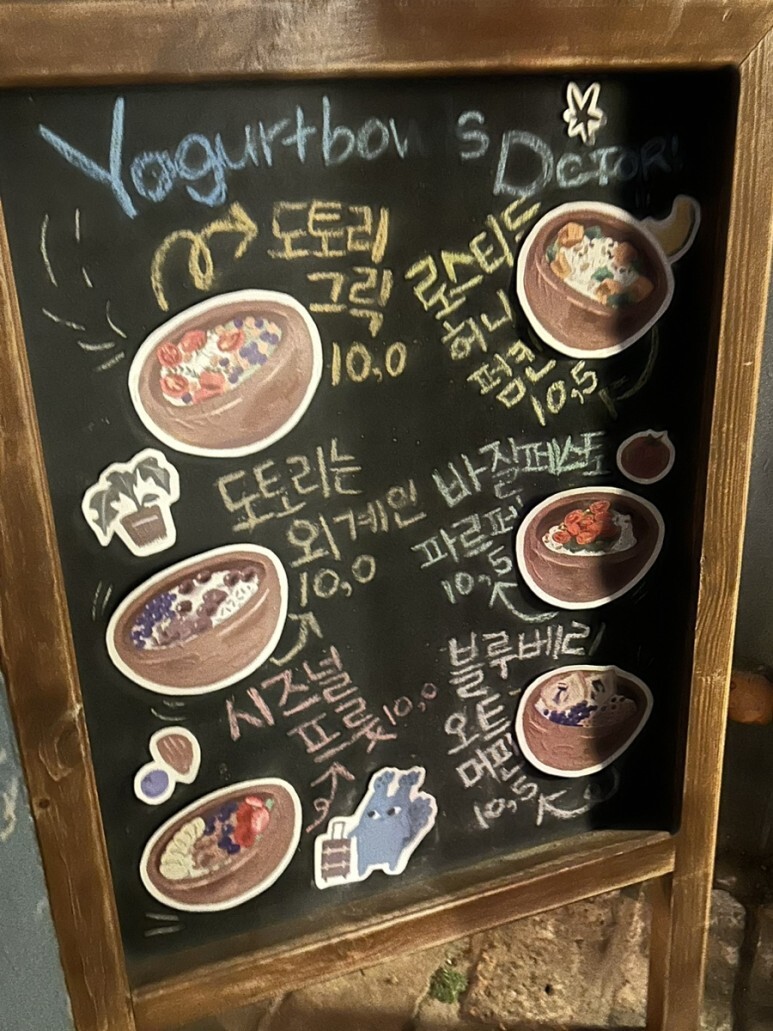 Yogurtbowls
DcTOR!
도토리
그릭
10,0
로스티드
허니
펌킨
10,5
도토리는
외계인
10,0
바질페스토
파르페
10,5
시즈널
프룻 10,0
블루베리
오트
머핀
10,5